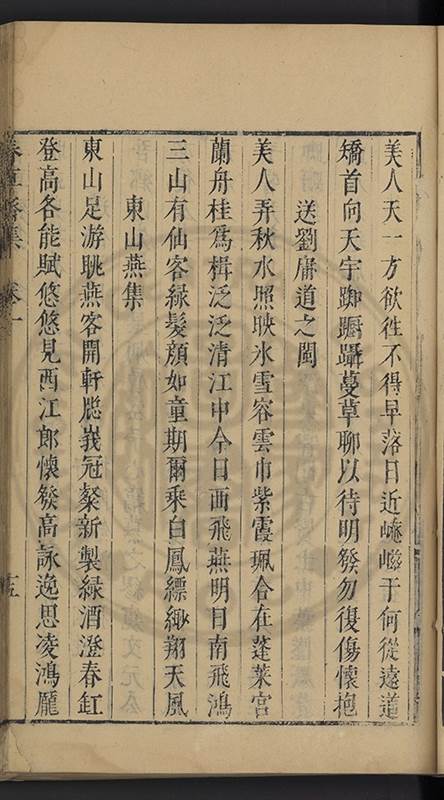 美人天一方欲徃不得早落日近崦嵫于何從遠道
矯首向天宇踟蹰躡蔓草聊以待明發勿復傷懷抱
送劉庸道之閩
美人弄秋水照映氷雪容雲巾紫霞珮合在蓬萊宮
蘭舟桂爲楫泛泛清江中今日西飛燕明日南飛鴻
三山有仙客綠髮顏如童期爾乘白鳳縹緲翔天風
東山燕集
東山足游眺燕客開軒𢈪峩冠粲新製緑酒澄春缸
登高各能賦悠悠見西江郎懷發高詠逸思凌鴻龎
春草齋集 卷一 十五